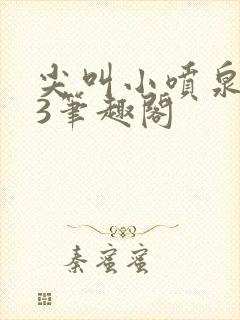 尖叫小喷泉
3笔趣阁
秦蜜蜜